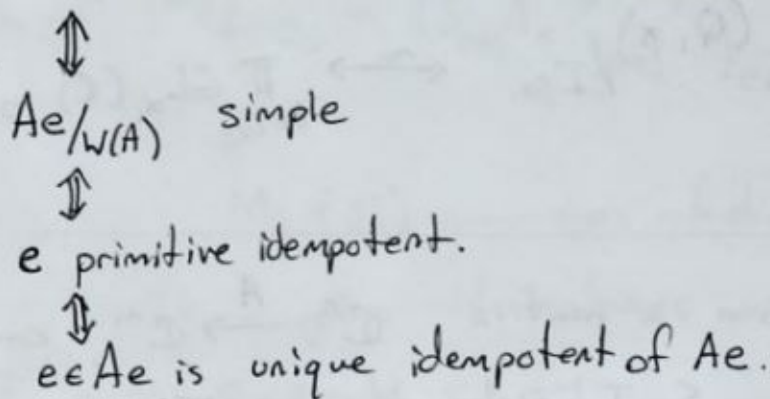 ⇕
Ae/W(A) simple
⇕
e primitive idempotent.
⇕
e∈Ae is unique idempotent of Ae.